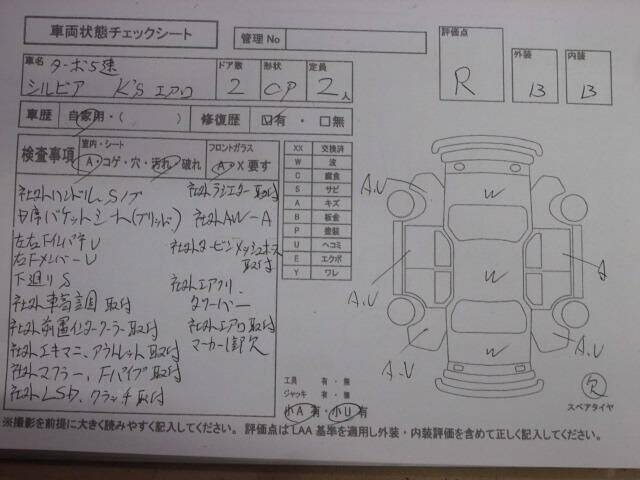 車両状態チェックシート
管理No
評価点
R
外装
B
内装
B
車名
ターボ5速
シルビア K's エアロ
ドア数
2
形状
CP
定員
2人
車歴 自家用・( ) 修復歴 ☑有・□無
検査事項
室内・シート
A・コゲ・穴・汚れ・破れ
フロントガラス
A・X要す
XX 交換済
W 波
C 腐食
S サビ
A キズ
B 板金
P 塗装
U ヘコミ
E エクボ
Y ワレ
社外ハンドル Sノブ
社外ラジエター取付
D席バケットシート(ブリッド)
社外AW-A
左右FインパネU
右FメンバーU
社外タービンメッシュホース
取付
下廻りS
社外車高調取付
社外エアクリ
タワーバー
社外前置インタークーラー取付
社外エアロ取付
社外エキマニ、アウトレット取付
マーカー1部欠
社外マフラー、Fパイプ取付
社外LSD、クラッチ取付
工具 有・無
ジャッキ 有・無
小A有・小U有
A.U
A.U
A.U
A.U
A
W
W
W
R
スペアタイヤ
※撮影を前提に大きく読みやすく記入してください。評価点はLAA基準を適用し外装・内装評価を含めて正しく記入してください。